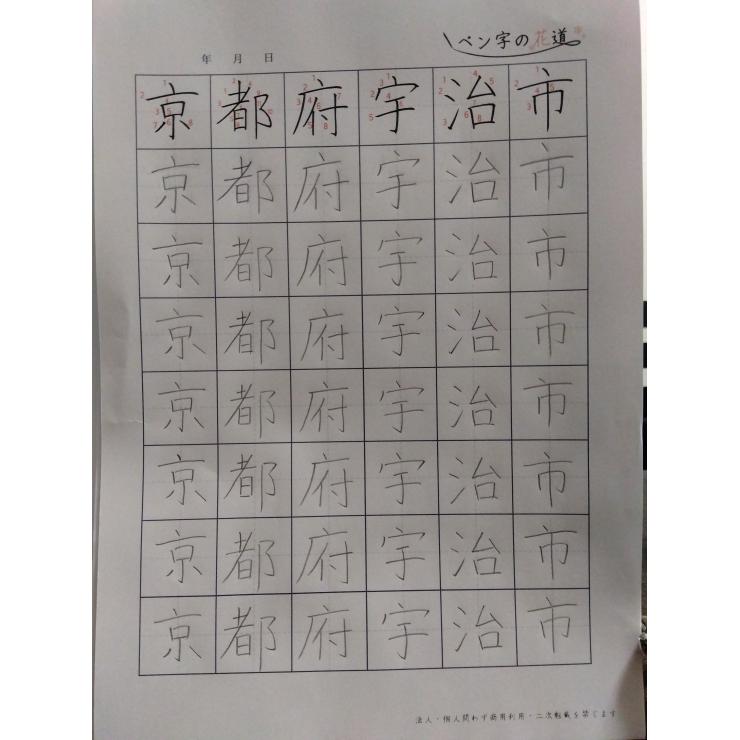 ペン字の花道
年 月 日
京都府宇治市
京都府宇治市
京都府宇治市
京都府宇治市
京都府宇治市
京都府宇治市
京都府宇治市
京都府宇治市
法人・個人問わず商用利用・二次転載を禁じます